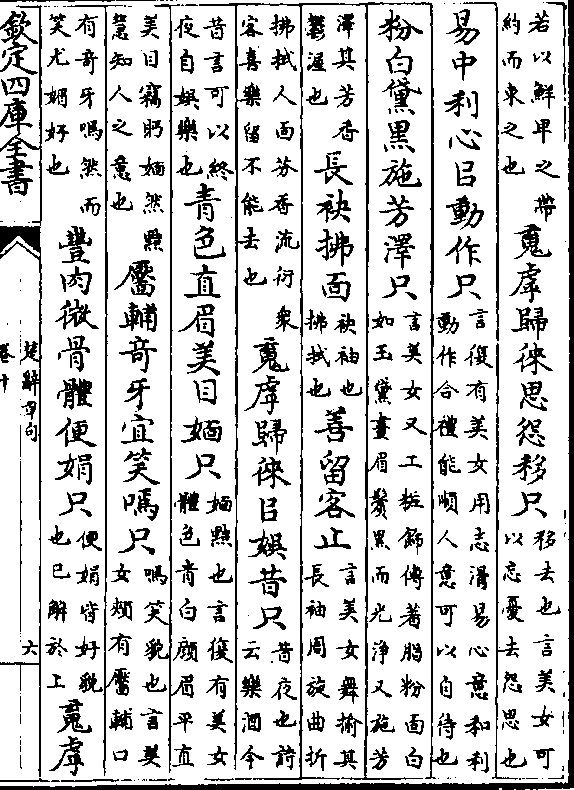 若以鮮卑之帶
約而束之也
䰟虖歸徠思怨移只
移去也言美女可
以忘憂去怨思也
易中利心㠯動作只
言復有美女用志滑易心意和利
動作合禮能順人意可以自待也
粉白黛黑施芳澤只
言美女又工粧飾傅著脂粉面白
如玉黛畫眉鬢黑而光淨又施芳
澤其芳香
鬱渥也
長袂拂面
袂袖也
拂拭也
善留客止
言美女舞揄其
長袖周旋曲折
拂拭人面芬香流衍衆
客喜樂留不能去也
䰟虖歸徠㠯娛昔只
昔夜也詩
云樂酒今
昔言可以終
夜自娛樂也
青色直眉美目媔只
媔黠也言復有美女
體色青白顔眉平直
美目竊眄媔然黠
慧知人之意也
靨輔奇牙宜笑嗎只
嗎笑貌也言美
女頰有靨輔口
有奇牙嗎然而
笑尤媚好也
豐肉微骨體便娟只
便娟皆好貌
也已解於上
䰟虖
欽定四庫全書
楚辭章句
卷十
六